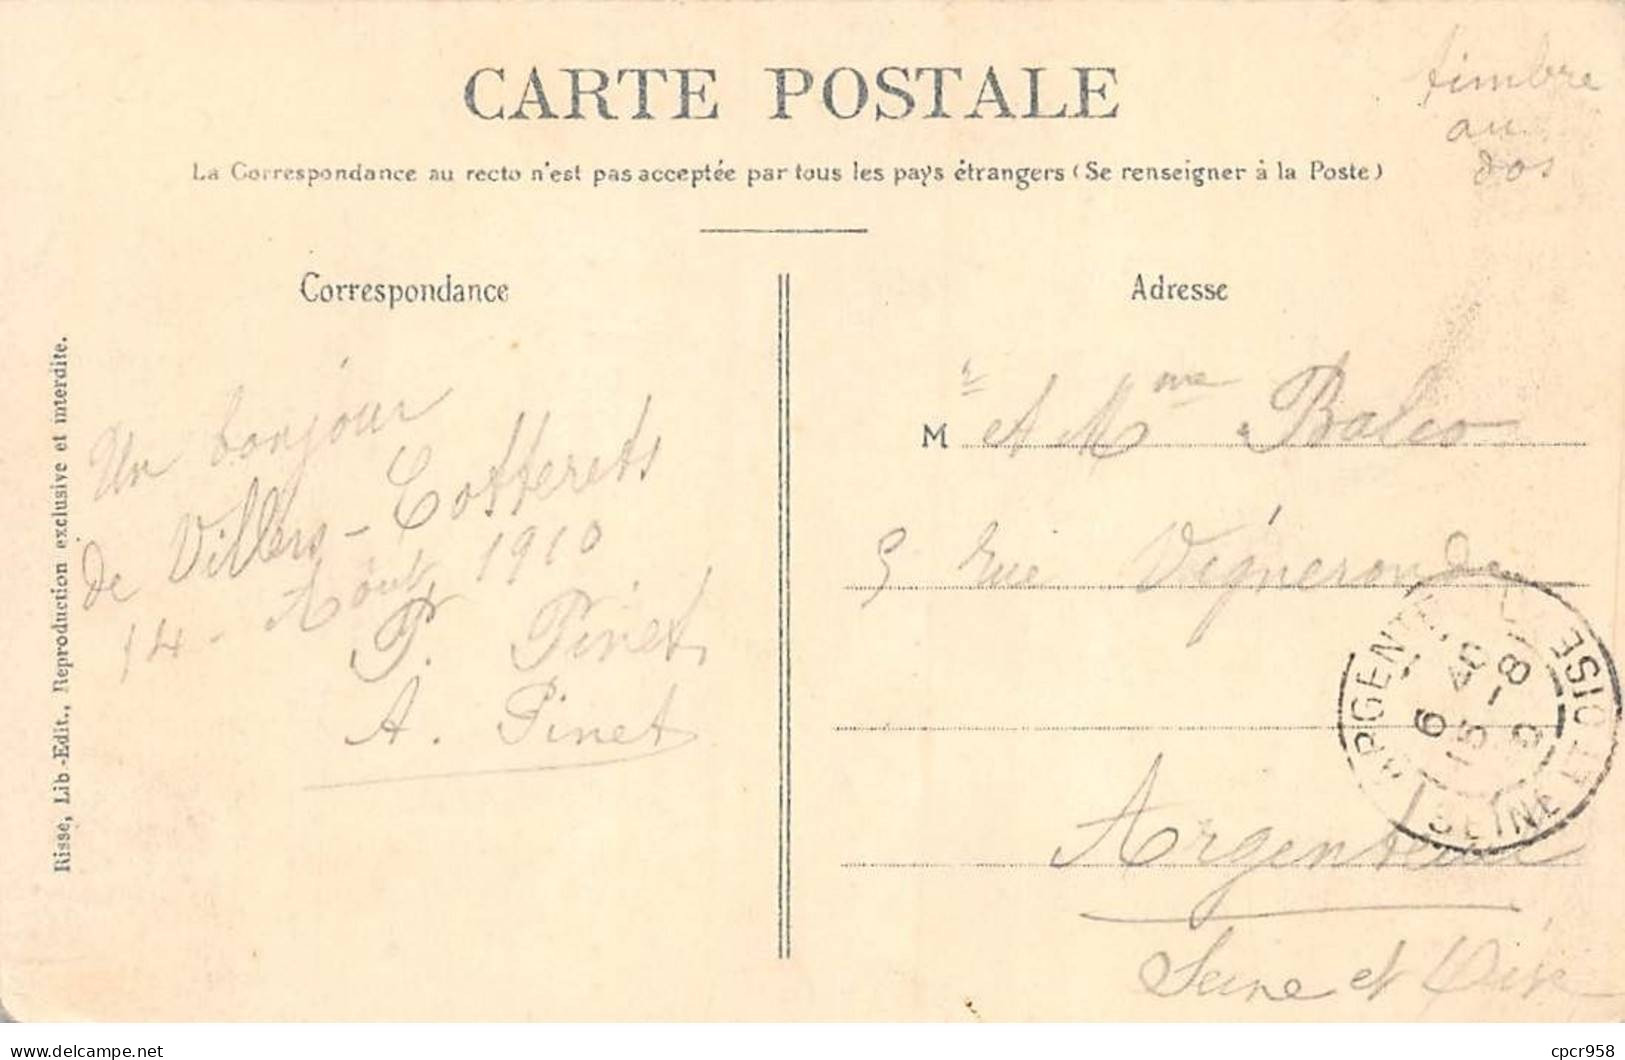 CARTE POSTALE
timbre
au
dos
La Correspondance au recto n'est pas acceptée par tous les pays étrangers (Se renseigner à la Poste)
Correspondance
Un bonjour
de Villers-Cotterets
14 - Août 1910
P. Pinet
A. Pinet
Risse, Lib.-Edit., Reproduction exclusive et interdite.
Adresse
M r et Mme
rue
ARGENTEUIL
6
15 - 8
10
SEINE ET OISE
Argenteuil
Seine et Oise
cpcr958